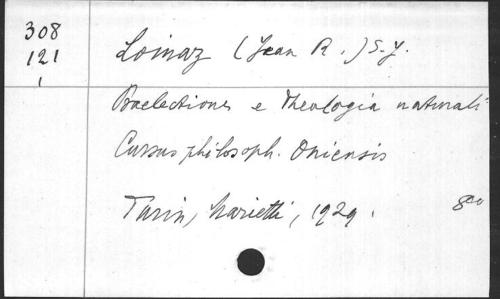 308
121
1
Loinaz (Jean R.) S.J.
Praelectiones e Theologia naturali
Cursus philosoph. Oniensis
Turin, Marietti, 1929. 8co